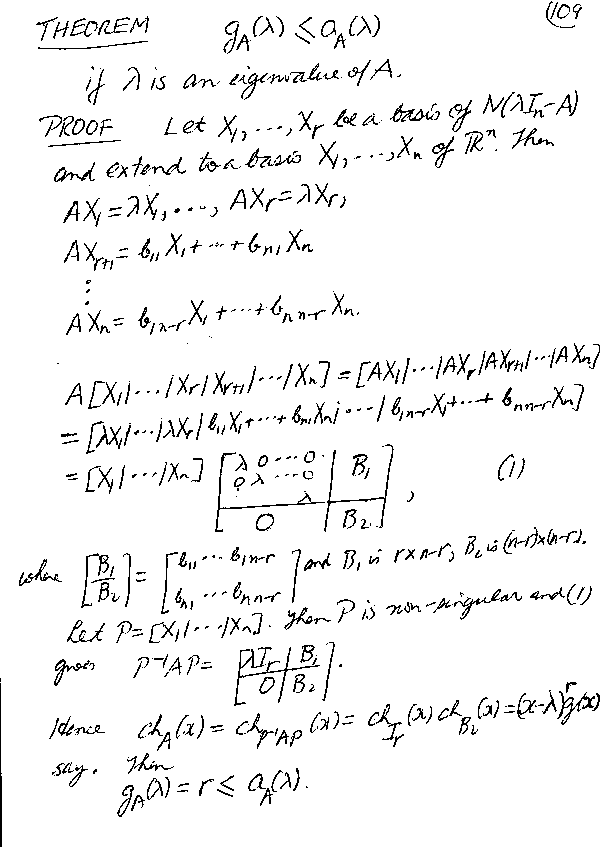 109
THEOREM g_A(λ) ≤ a_A(λ)
if λ is an eigenvalue of A.
PROOF Let X₁, ..., Xᵣ be a basis of N(λIₙ-A)
and extend to a basis X₁, ..., Xₙ of ℝⁿ. Then
AX₁ = λX₁, ..., AXᵣ = λXᵣ,
AXᵣ₊₁ = b₁₁X₁ + ... + bₙ₁Xₙ
⋮
AXₙ = b₁ₙ₋ᵣX₁ + ... + bₙₙ₋ᵣXₙ.
A[X₁|...|Xᵣ|Xᵣ₊₁|...|Xₙ] = [AX₁|...|AXᵣ|AXᵣ₊₁|...|AXₙ]
= [λX₁|...|λXᵣ|b₁₁X₁+...+bₙ₁Xₙ|...|b₁ₙ₋ᵣX₁+...+bₙₙ₋ᵣXₙ]
= [X₁|...|Xₙ] [λ 0 ... 0 | B₁
0 λ ... 0
λ
0 | B₂], (1)
where [B₁/B₂] = [b₁₁ ... b₁ₙ₋ᵣ
bₙ₁ ... bₙₙ₋ᵣ] and B₁ is r×n-r, B₂ is (n-r)×(n-r).
Let P = [X₁|...|Xₙ]. Then P is non-singular and (1)
gives P⁻¹AP = [λIᵣ | B₁
0 | B₂].
Hence ch_A(x) = ch_P⁻¹AP(x) = ch_Iᵣ(x) ch_B₂(x) = (x-λ)ʳg(x)
say. Then
g_A(λ) = r ≤ a_A(λ).